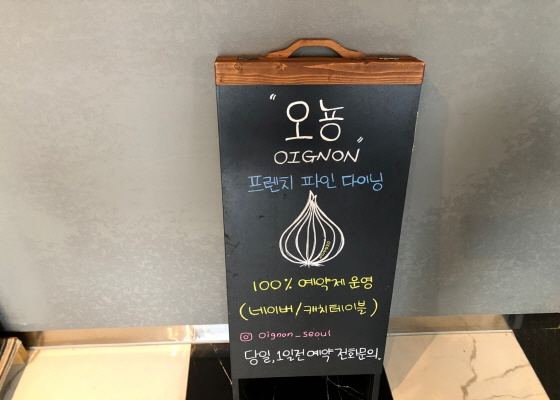 "오뇽"
OIGNON
프렌치 파인 다이닝
100% 예약제 운영
(네이버/캐치테이블)
oignon_seoul
당일, 1일전 예약 전화문의.